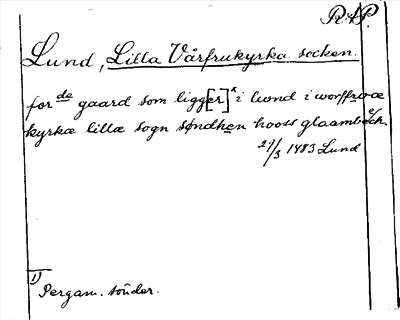 RAP.
Lund, Lilla Vårfrukyrka socken.
for de gaard som ligg[er]x i lwnd i worffrwæ
kyrkæ lillæ sogn søndhen hooss glaambæck. 2/
27/3 1483 Lund
1) Pergam. sönder.